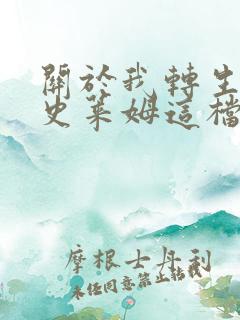 關於我轉生
史萊姆這檔
摩根士丹利
未任同意禁止轉載